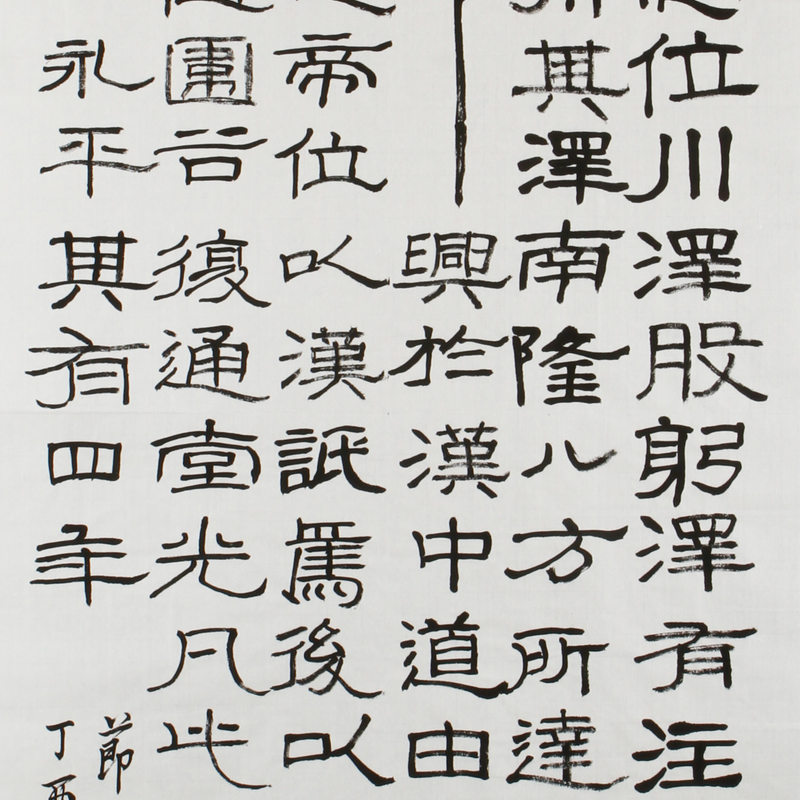 位川澤股躬澤有注
其澤南隆八方所達
興於漢中道由
帝位以漢詆焉後以
圍谷復通堂光凡此
永平其有四年
節
丁酉